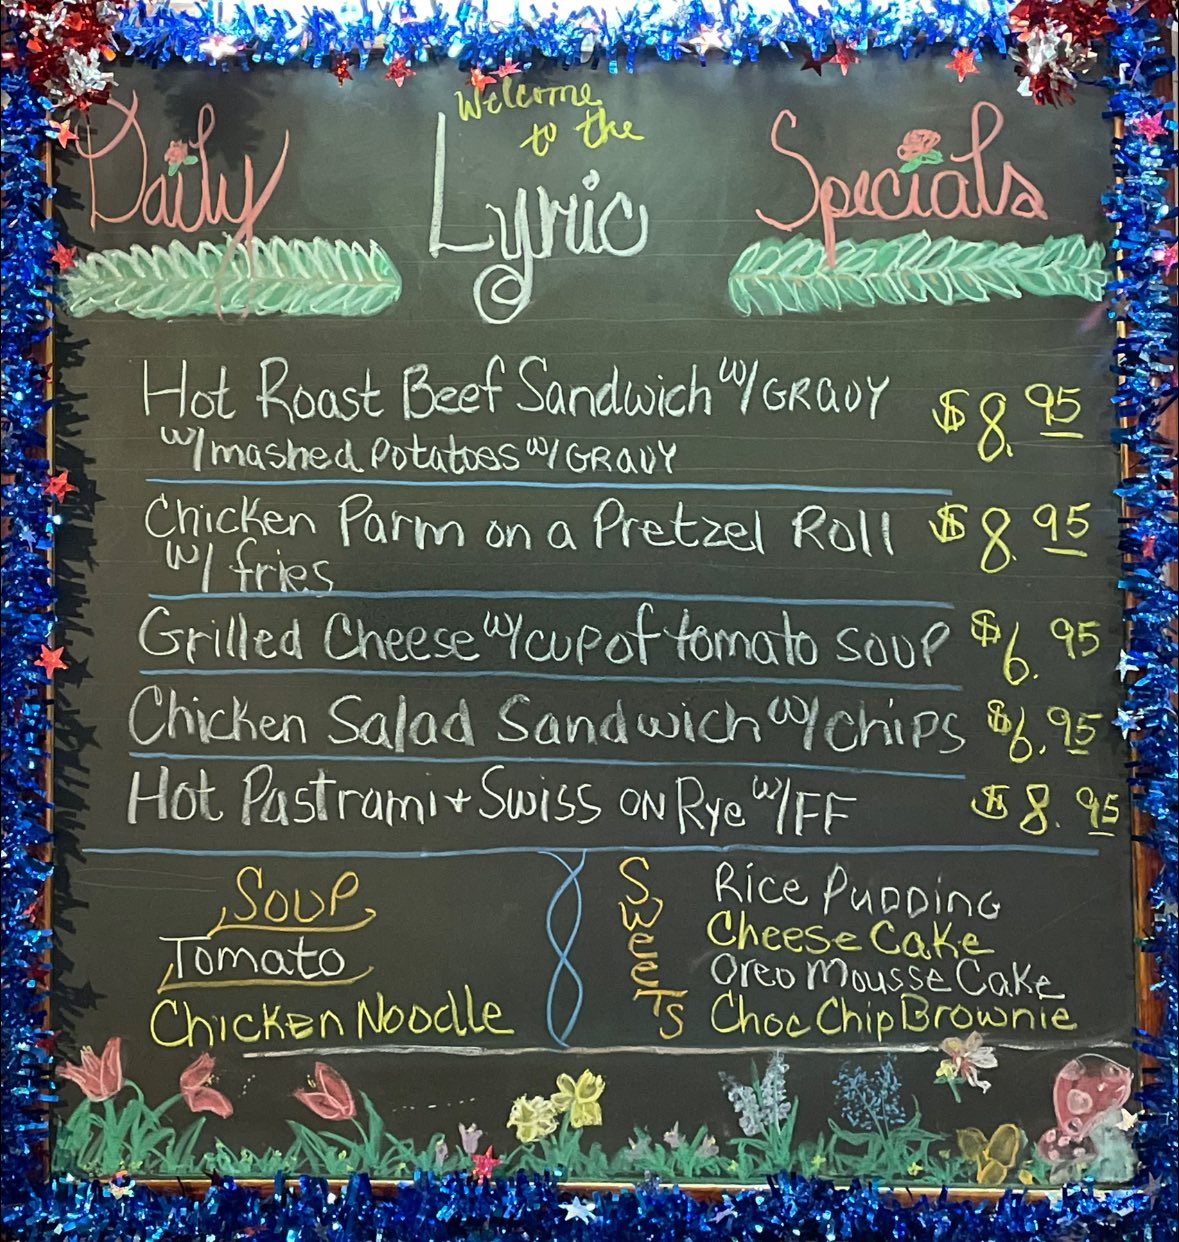 Welcome
to the
Daily Lyric Specials
Hot Roast Beef Sandwich w/GRAVY $8.95
w/mashed potatoes w/GRAVY
Chicken Parm on a Pretzel Roll $8.95
w/ fries
Grilled Cheese w/cup of tomato soup $6.95
Chicken Salad Sandwich w/chips $6.95
Hot Pastrami + Swiss on Rye w/FF $8.95
Soup
Tomato
Chicken Noodle
SweeTs
Rice Pudding
Cheese Cake
Oreo Mousse Cake
Choc Chip Brownie